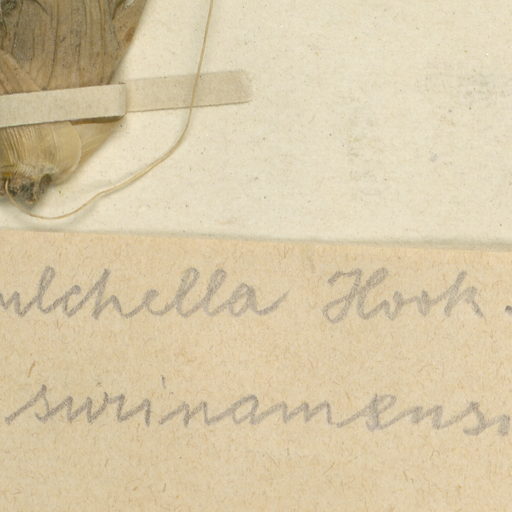 ulchella Hook.
surinamensi